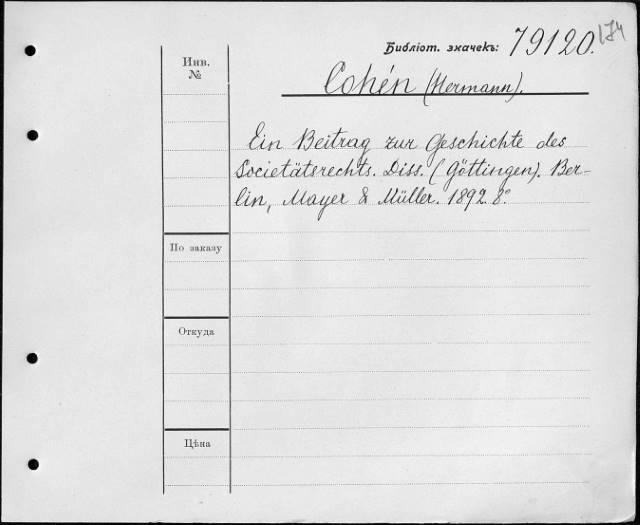 174
Библіот. значекъ: 79120.
Инв.
№
Cohén (Hermann).
Ein Beitrag zur Geschichte des
Societätsrechts. Diss. (Göttingen). Ber-
lin, Mayer & Müller. 1892. 8°.
По заказу
Откуда
Цѣна